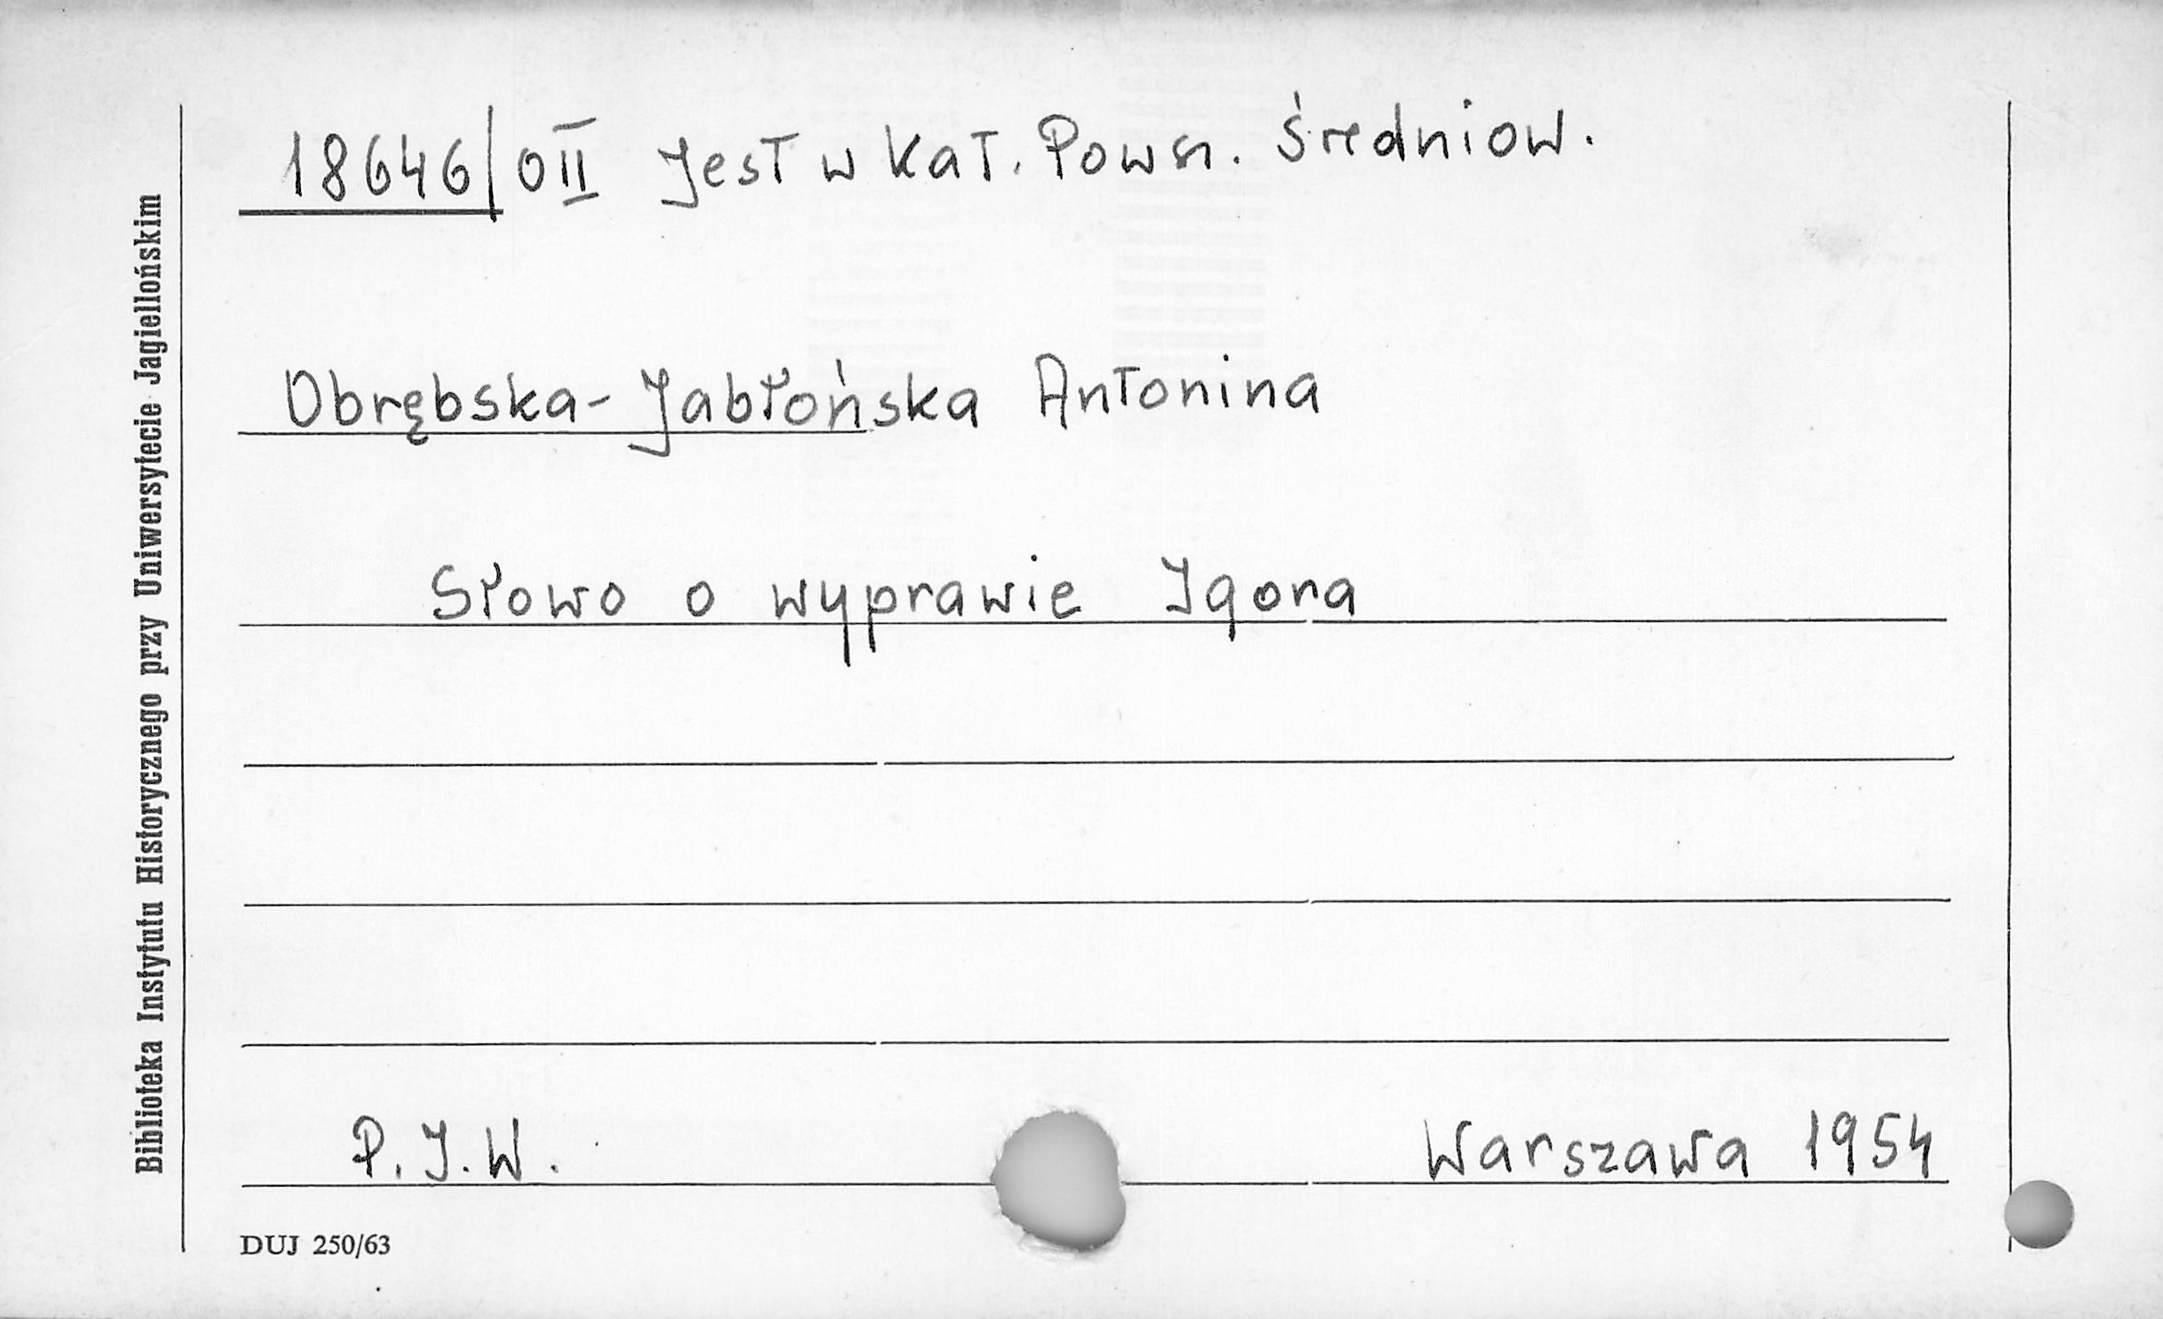 18646/OII Jest w Kat. Pows. Średniow.
Obrębska-Jabłońska Antonina
Słowo o wyprawie Igora
P.I.W. Warszawa 1954
DUJ 250/63
Biblioteka Instytutu Historycznego przy Uniwersytecie Jagiellońskim